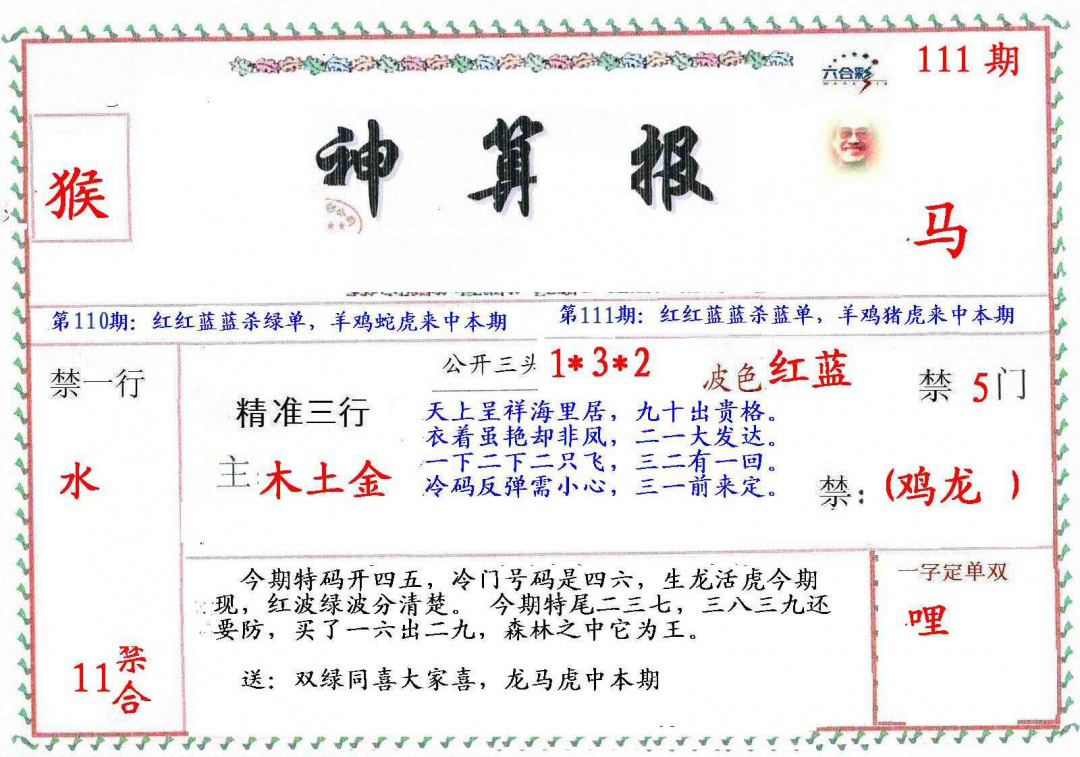 111 期
六合彩
神算报
猴
马
第110期：红红蓝蓝杀绿单，羊鸡蛇虎来中本期
第111期：红红蓝蓝杀蓝单，羊鸡猪虎来中本期
禁一行
水
11禁合
精准三行
主:木土金
公开三头 1*3*2
波色红蓝
天上呈祥海里居，九十出贵格。
衣着虽艳却非凤，二一大发达。
一下二下二只飞，三二有一回。
冷码反弹需小心，三一前来定。
禁 5门
禁：(鸡龙 )
今期特码开四五，冷门号码是四六，生龙活虎今期
现，红波绿波分清楚。 今期特尾二三七，三八三九还
要防，买了一六出二九，森林之中它为王。
送：双绿同喜大家喜，龙马虎中本期
一字定单双
哩